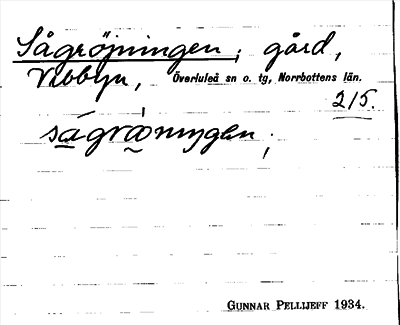 Sågröjningen; gård,
Vibbyn, Överluleå sn o. tg, Norrbottens län.
215.
GUNNAR PELLIJEFF 1934.